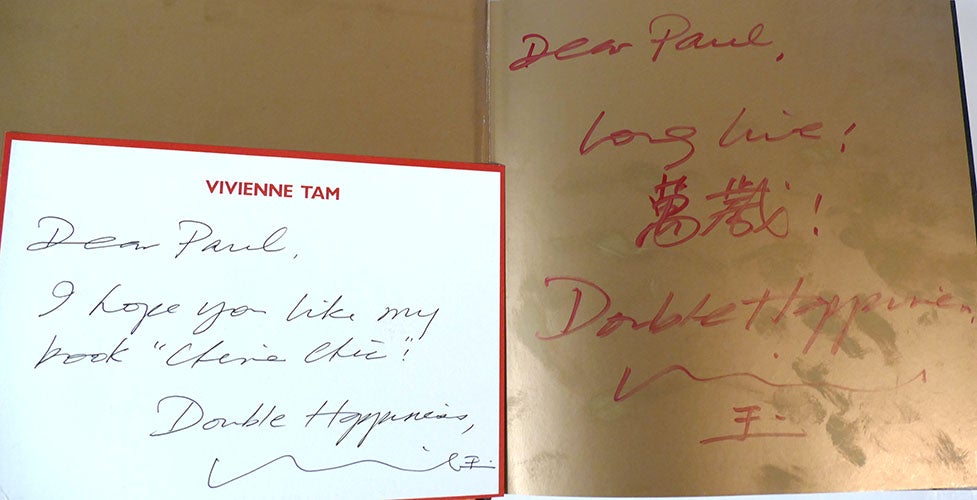 VIVIENNE TAM
Dear Paul,
I hope you like my
book "China Chic"!
Double Happiness,
Dear Paul,
Long Live!
萬歲!
Double Happiness,